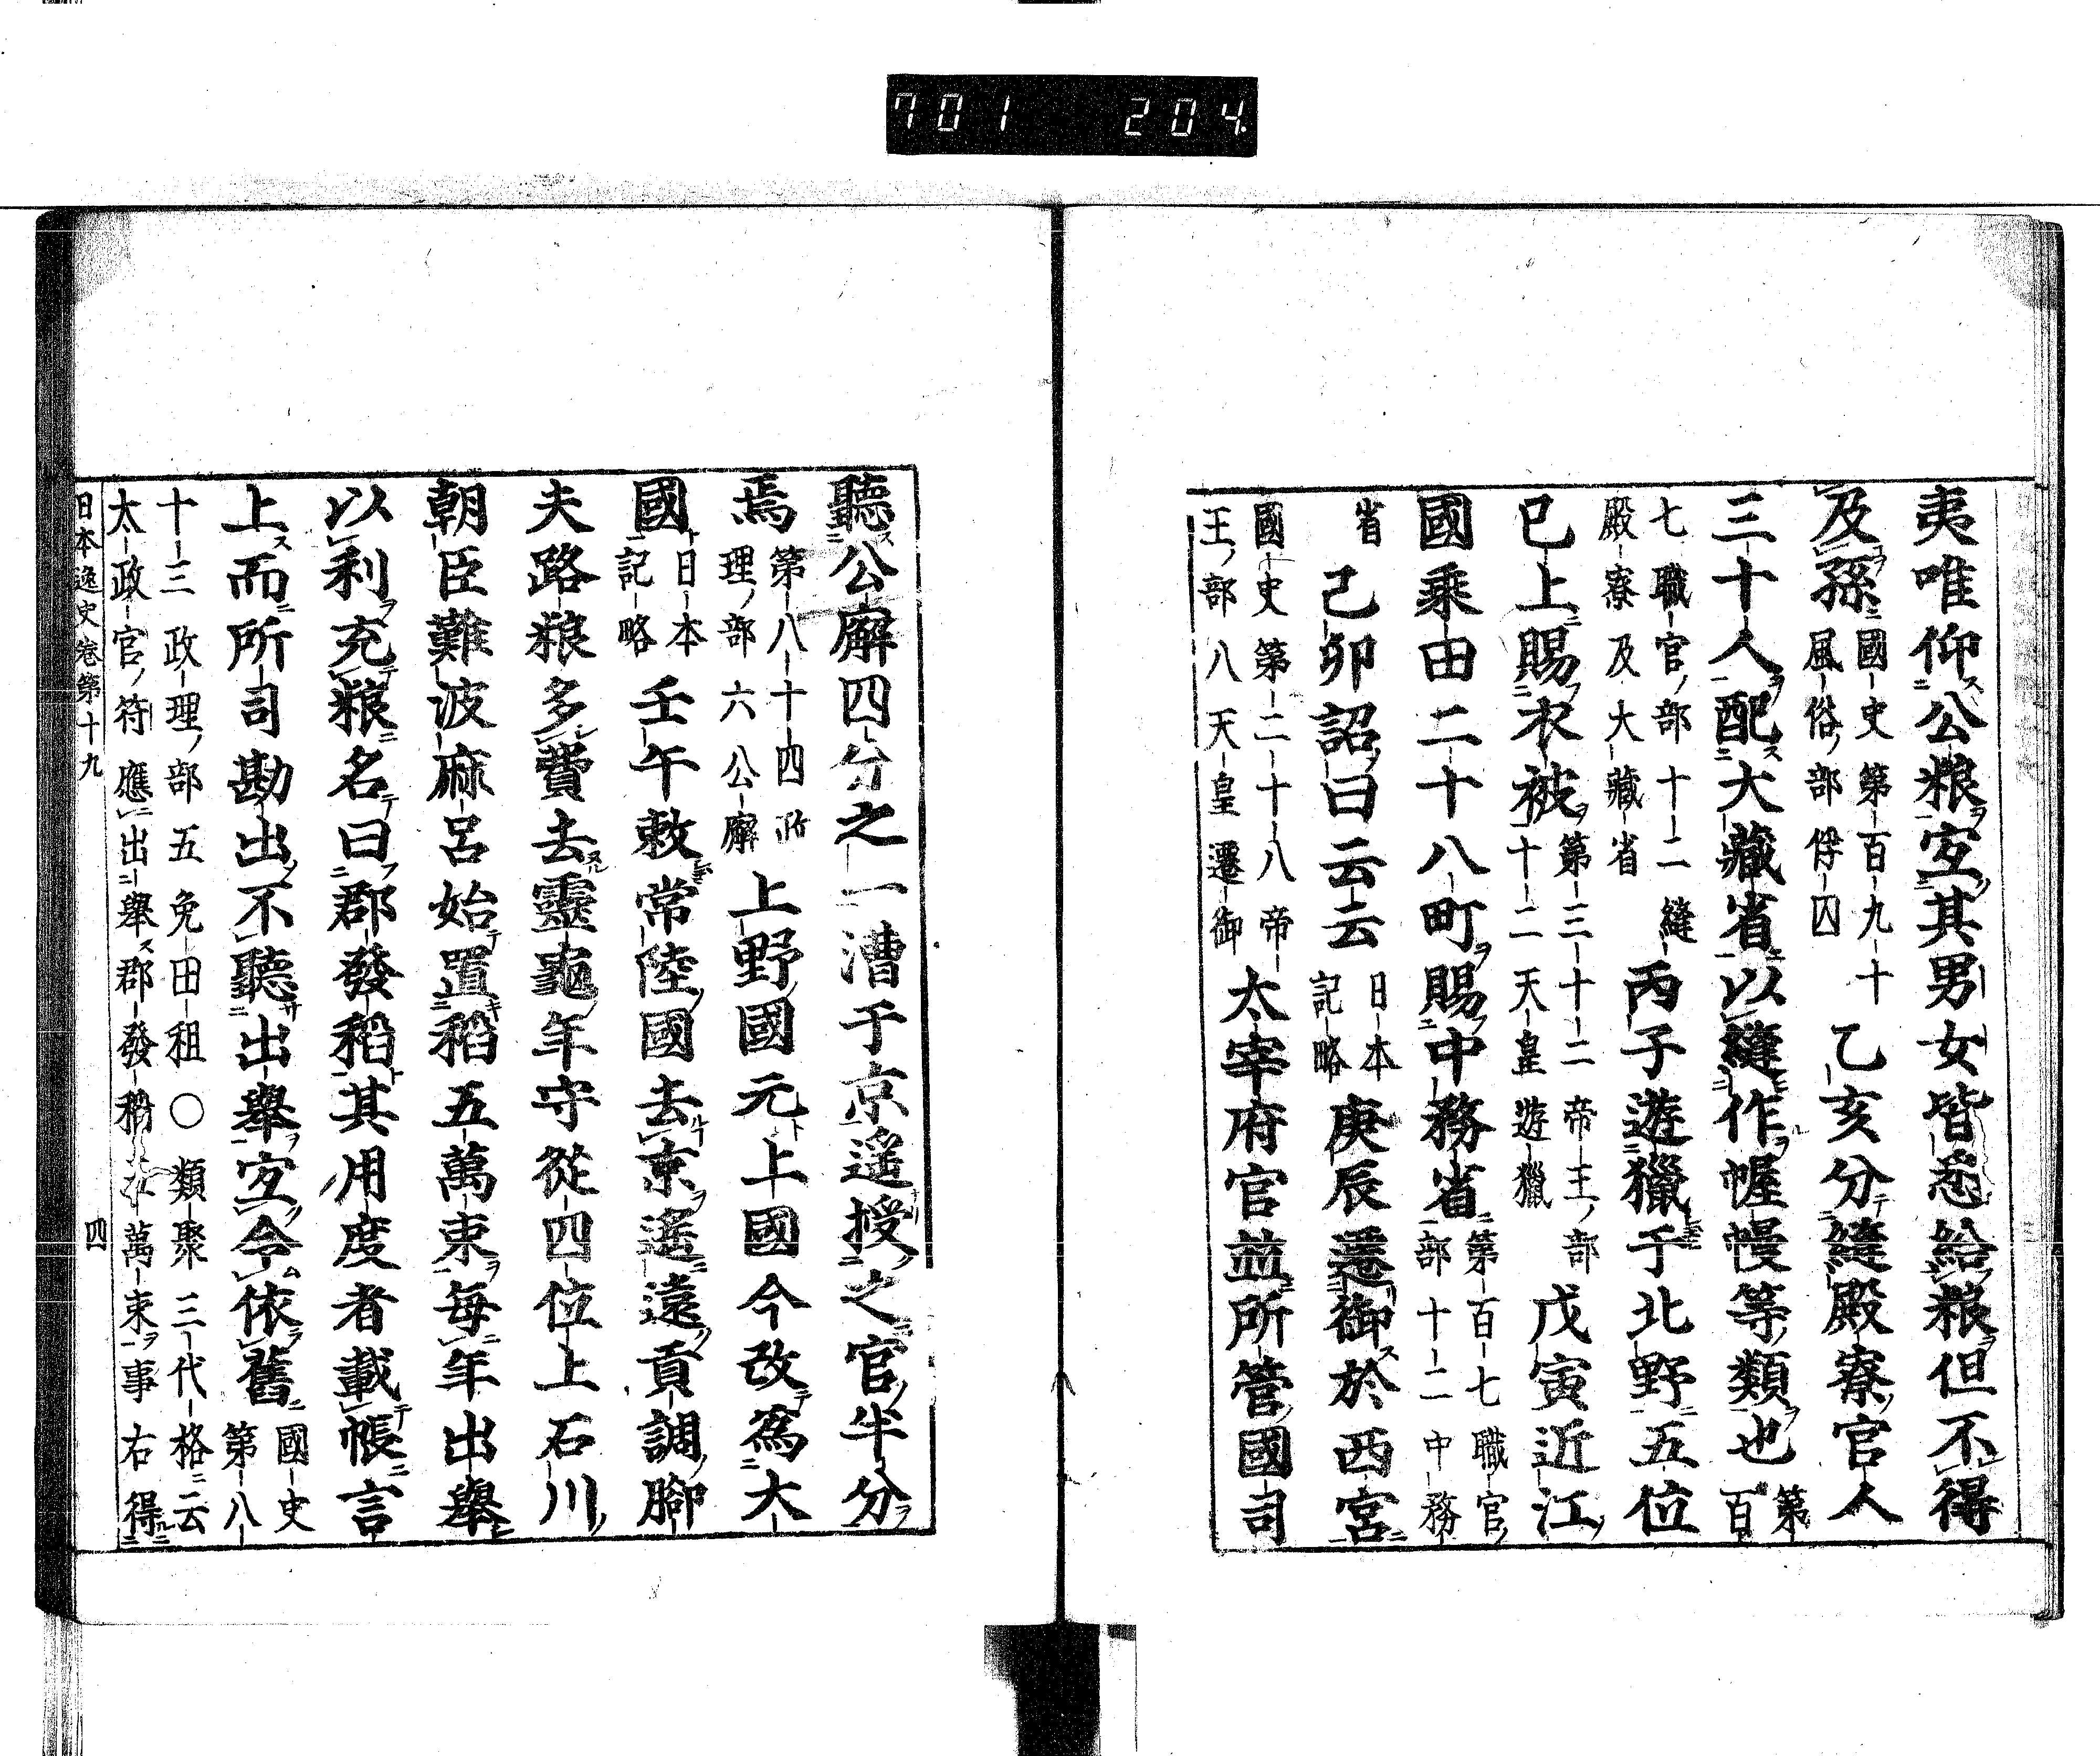 701 204
夷唯仰公粮宜其男女皆悉給粮但不得
及孫國史第百九十風俗部俘囚乙亥分縫殿寮官人
三十人配大藏省以縫作幄幔等類也第百
七職官部十二縫殿寮及大藏省丙子遊獵于北野五位
已上賜衣被第三十二帝王部十二天皇遊獵戊寅近江
國乘田二十八町賜中務省第百七職官部十二中務
省己卯詔曰云云日本記略庚辰遷御於西宮
國史第二十八帝王部八天皇遷御太宰府官並所管國司
聽公廨四分之一漕于京遥授之官半分
焉第八十四政理部六公廨上野國元上國今改爲大
國日本記略壬午敕常陸國去京遙遠貢調脚
夫路粮多費去靈龜年守從四位上石川
朝臣難波麻呂始置稻五萬束每年出舉
以利充粮名曰郡發稻其用度者載帳言
上而所司勘出不聽出舉宜令依舊國史第八
十三政理部五免田租○類聚三代格云
太政官符應出舉郡發稻萬束事右得
日本逸史卷第十九 四